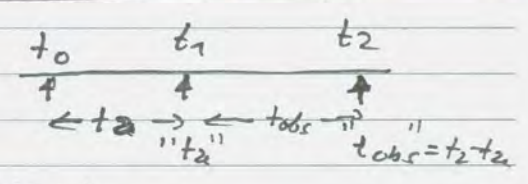 t₀ t₁ t₂
← ta → ← tobs →
"ta" "tobs" = t₂ - ta